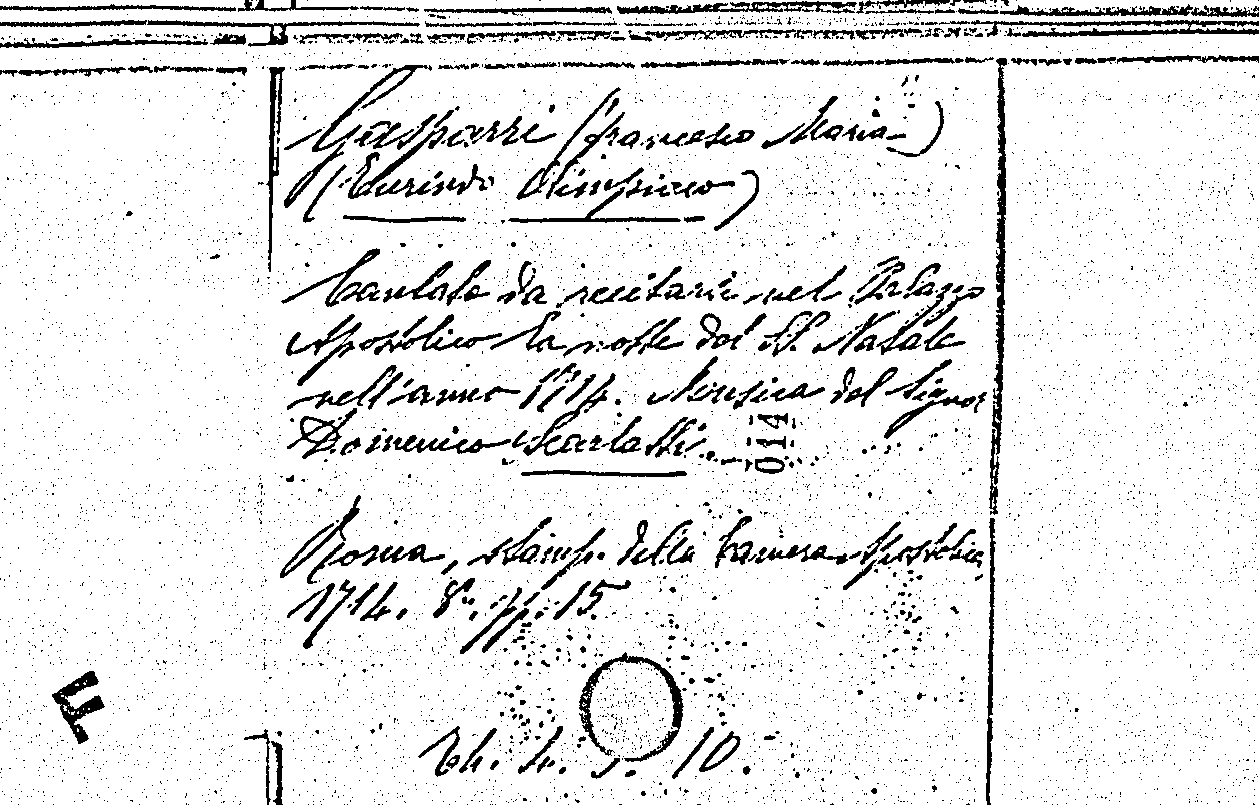 Gasparri (francesco Maria)
(Eurindo Olimpiaco)
Cantata da recitarsi nel Palazzo
Apostolico la notte del SS. Natale
nell'anno 1714. Musica del Signor
Domenico Scarlatti.
014
Roma, stamp. della Camera Apostolica,
1714. 8º. pp. 15.
10.
F